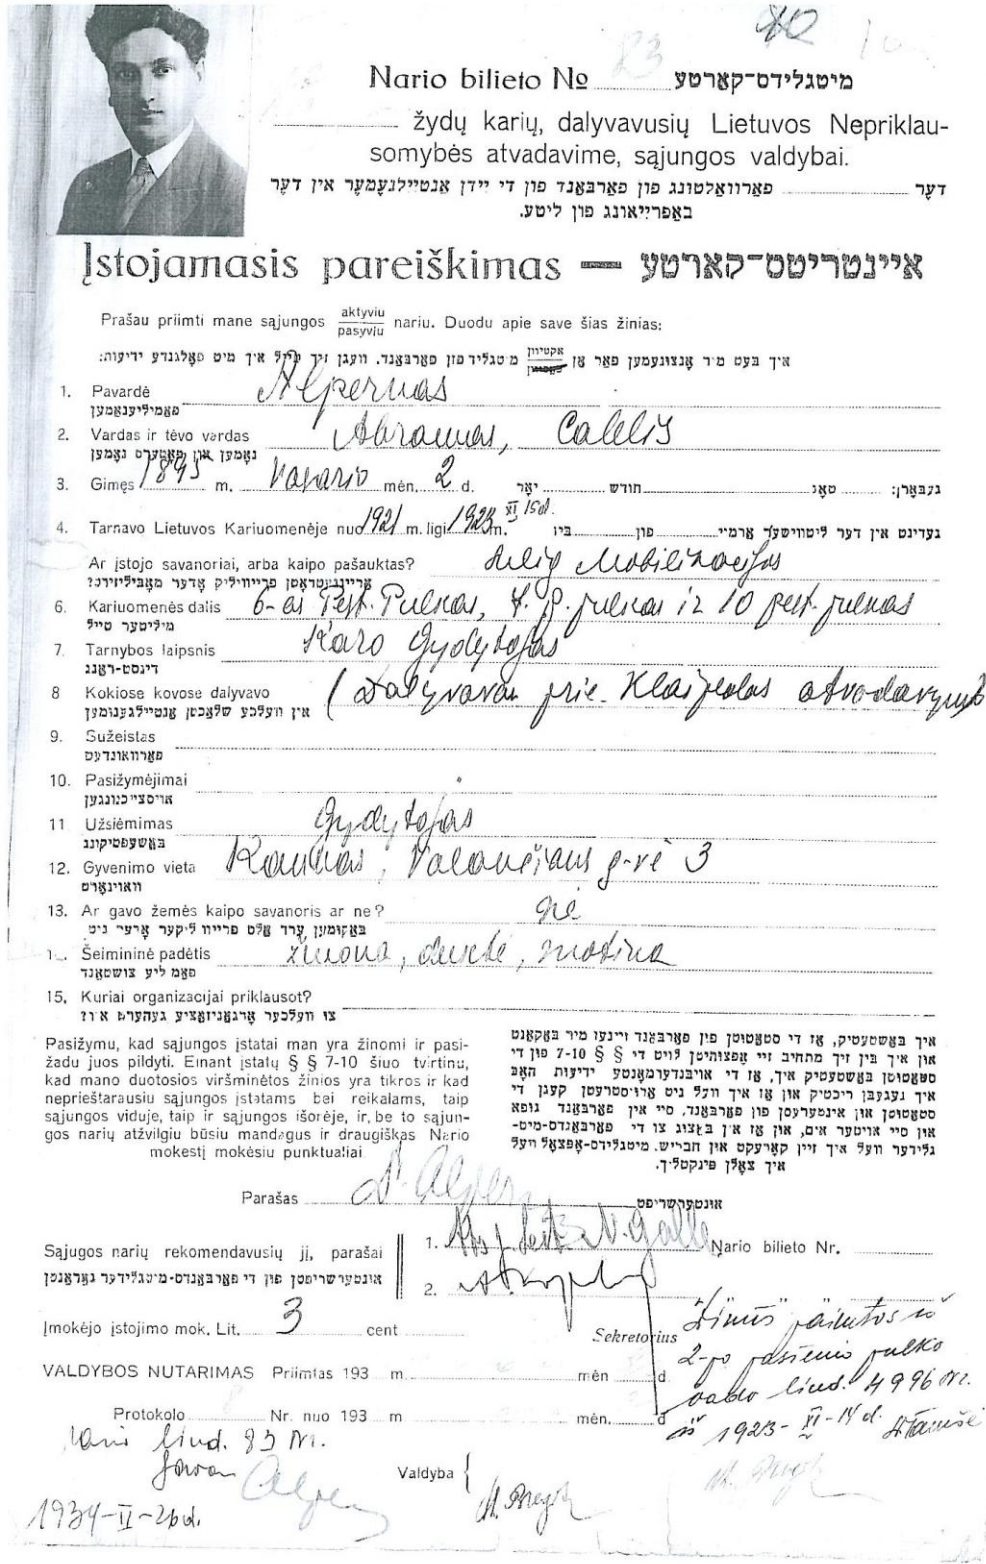 40
Nario bilieto № 83 מיטגלידס־קארטע
žydų karių, dalyvavusių Lietuvos Nepriklau-
somybės atvadavime, sąjungos valdybai.
דער פארוואלטונג פון פארבאנד פון די יידן אנטיילנעמער אין דער
באפרייאונג פון ליטע.
Įstojamasis pareiškimas — איינטריטס־קארטע
Prašau priimti mane sąjungos aktyviu/pasyviu nariu. Duodu apie save šias žinias:
איך בעט מיר אָנצונעמען פאר אן אקטיוון מיטגליד פון פארבאנד. וועגן זיך טייל איך מיט פאלגנדע ידיעות:
1. Pavardė Alpernas
פאמיליענאמען
2. Vardas ir tėvo vardas Abramas, Calelis
נאמען און פאטערס נאמען
3. Gimęs 1893 m. Vasario mėn. 2 d. יאר חודש טאג געבארן:
4. Tarnavo Lietuvos Kariuomenėje nuo 1921 m. ligi 1923 m. XI 15 d. ביז פון געדינט אין דער ליטווישער ארמיי
Ar įstojo savanoriai, arba kaipo pašauktas? Mobilizacijos
אריינגעטראטן פרייוויליק אדער מאביליזירט?
6. Kariuomenės dalis 6-as Pėst. Pulkas, 7. p. pulkas ir 10 pėst. pulkas
מיליטער טייל
7. Tarnybos laipsnis Karo Gydytojas
דינסט־ראנג
8 Kokiose kovose dalyvavo (Dalyvavau prie Klaipėdos atvadavymo
אין וועלכע שלאכטן אנטיילגענומען
9. Sužeistas
פארוואונדעט
10. Pasižymėjimai
אויסצייכנונגען
11 Užsiėmimas Gydytojas
באשעפטיקונג
12. Gyvenimo vieta Kaunas, Valančiaus g-vė 3
וואוינארט
13. Ar gavo žemės kaipo savanoris ar ne? ne
באקומען ערד אלס פרייוויליקער אדער ניט
1 Šeimininė padėtis žmona, duktė, motina
פאמיליע צושטאנד
15. Kuriai organizacijai priklausot?
צו וועלכער ארגאניזאציע געהערט איר?
Pasižymu, kad sąjungos įstatai man yra žinomi ir pasi-
žadu juos pildyti. Einant įstatų § § 7-10 šiuo tvirtinu,
kad mano duotosios viršminėtos žinios yra tikros ir kad
neprieštarausiu sąjungos įstatams bei reikalams, taip
sąjungos viduje, taip ir sąjungos išorėje, ir, be to sąjun-
gos narių atžvilgiu būsiu mandagus ir draugiškas Nario
mokestį mokėsiu punktualiai
איך באשטעטיק, אז די סטאטוטן פון פארבאנד זיינען מיר באקאנט
און איך בין זיך מתחייב זיי אפצוהיטן לויט די § § 7-10 פון די
סטאטוטן באשטעטיק איך, אז די אויבנדערמאנטע ידיעות האב
איך געגעבן ריכטיק און אז איך וועל ניט ארויסטרעטן קעגן די
סטאטוטן און אינטערעסן פון פארבאנד, סיי אין פארבאנד גופא
און סיי אויסער אים, און אז אין בצוג צו די פארבאנדס־מיט־
גלידער וועל איך זיין קארעקט און חבריש. מיטגלידס־אפצאל וועל
איך צאלן פינקטליך.
Parašas A. Alpern אונטערשריפט
Sąjugos narių rekomendavusių jį, parašai
אונטערשריפטן פון די פארבאנדס־מיטגלידער גאראנטן
1. N. Galle Nario bilieto Nr.
2.
Įmokėjo įstojimo mok. Lit. 3 cent
Sekretorius
"Žinios" paimtos iš
2-po pasienio pulko
vado liud. 4996 Nr.
iš 1923-XI-14 d.
VALDYBOS NUTARIMAS Priimtas 193 m mėn d.
Protokolo 8 Nr. nuo 193 m mėn. d
liud. 83 Nr.
gavau Alpern
Valdyba
1934-II-26 d.